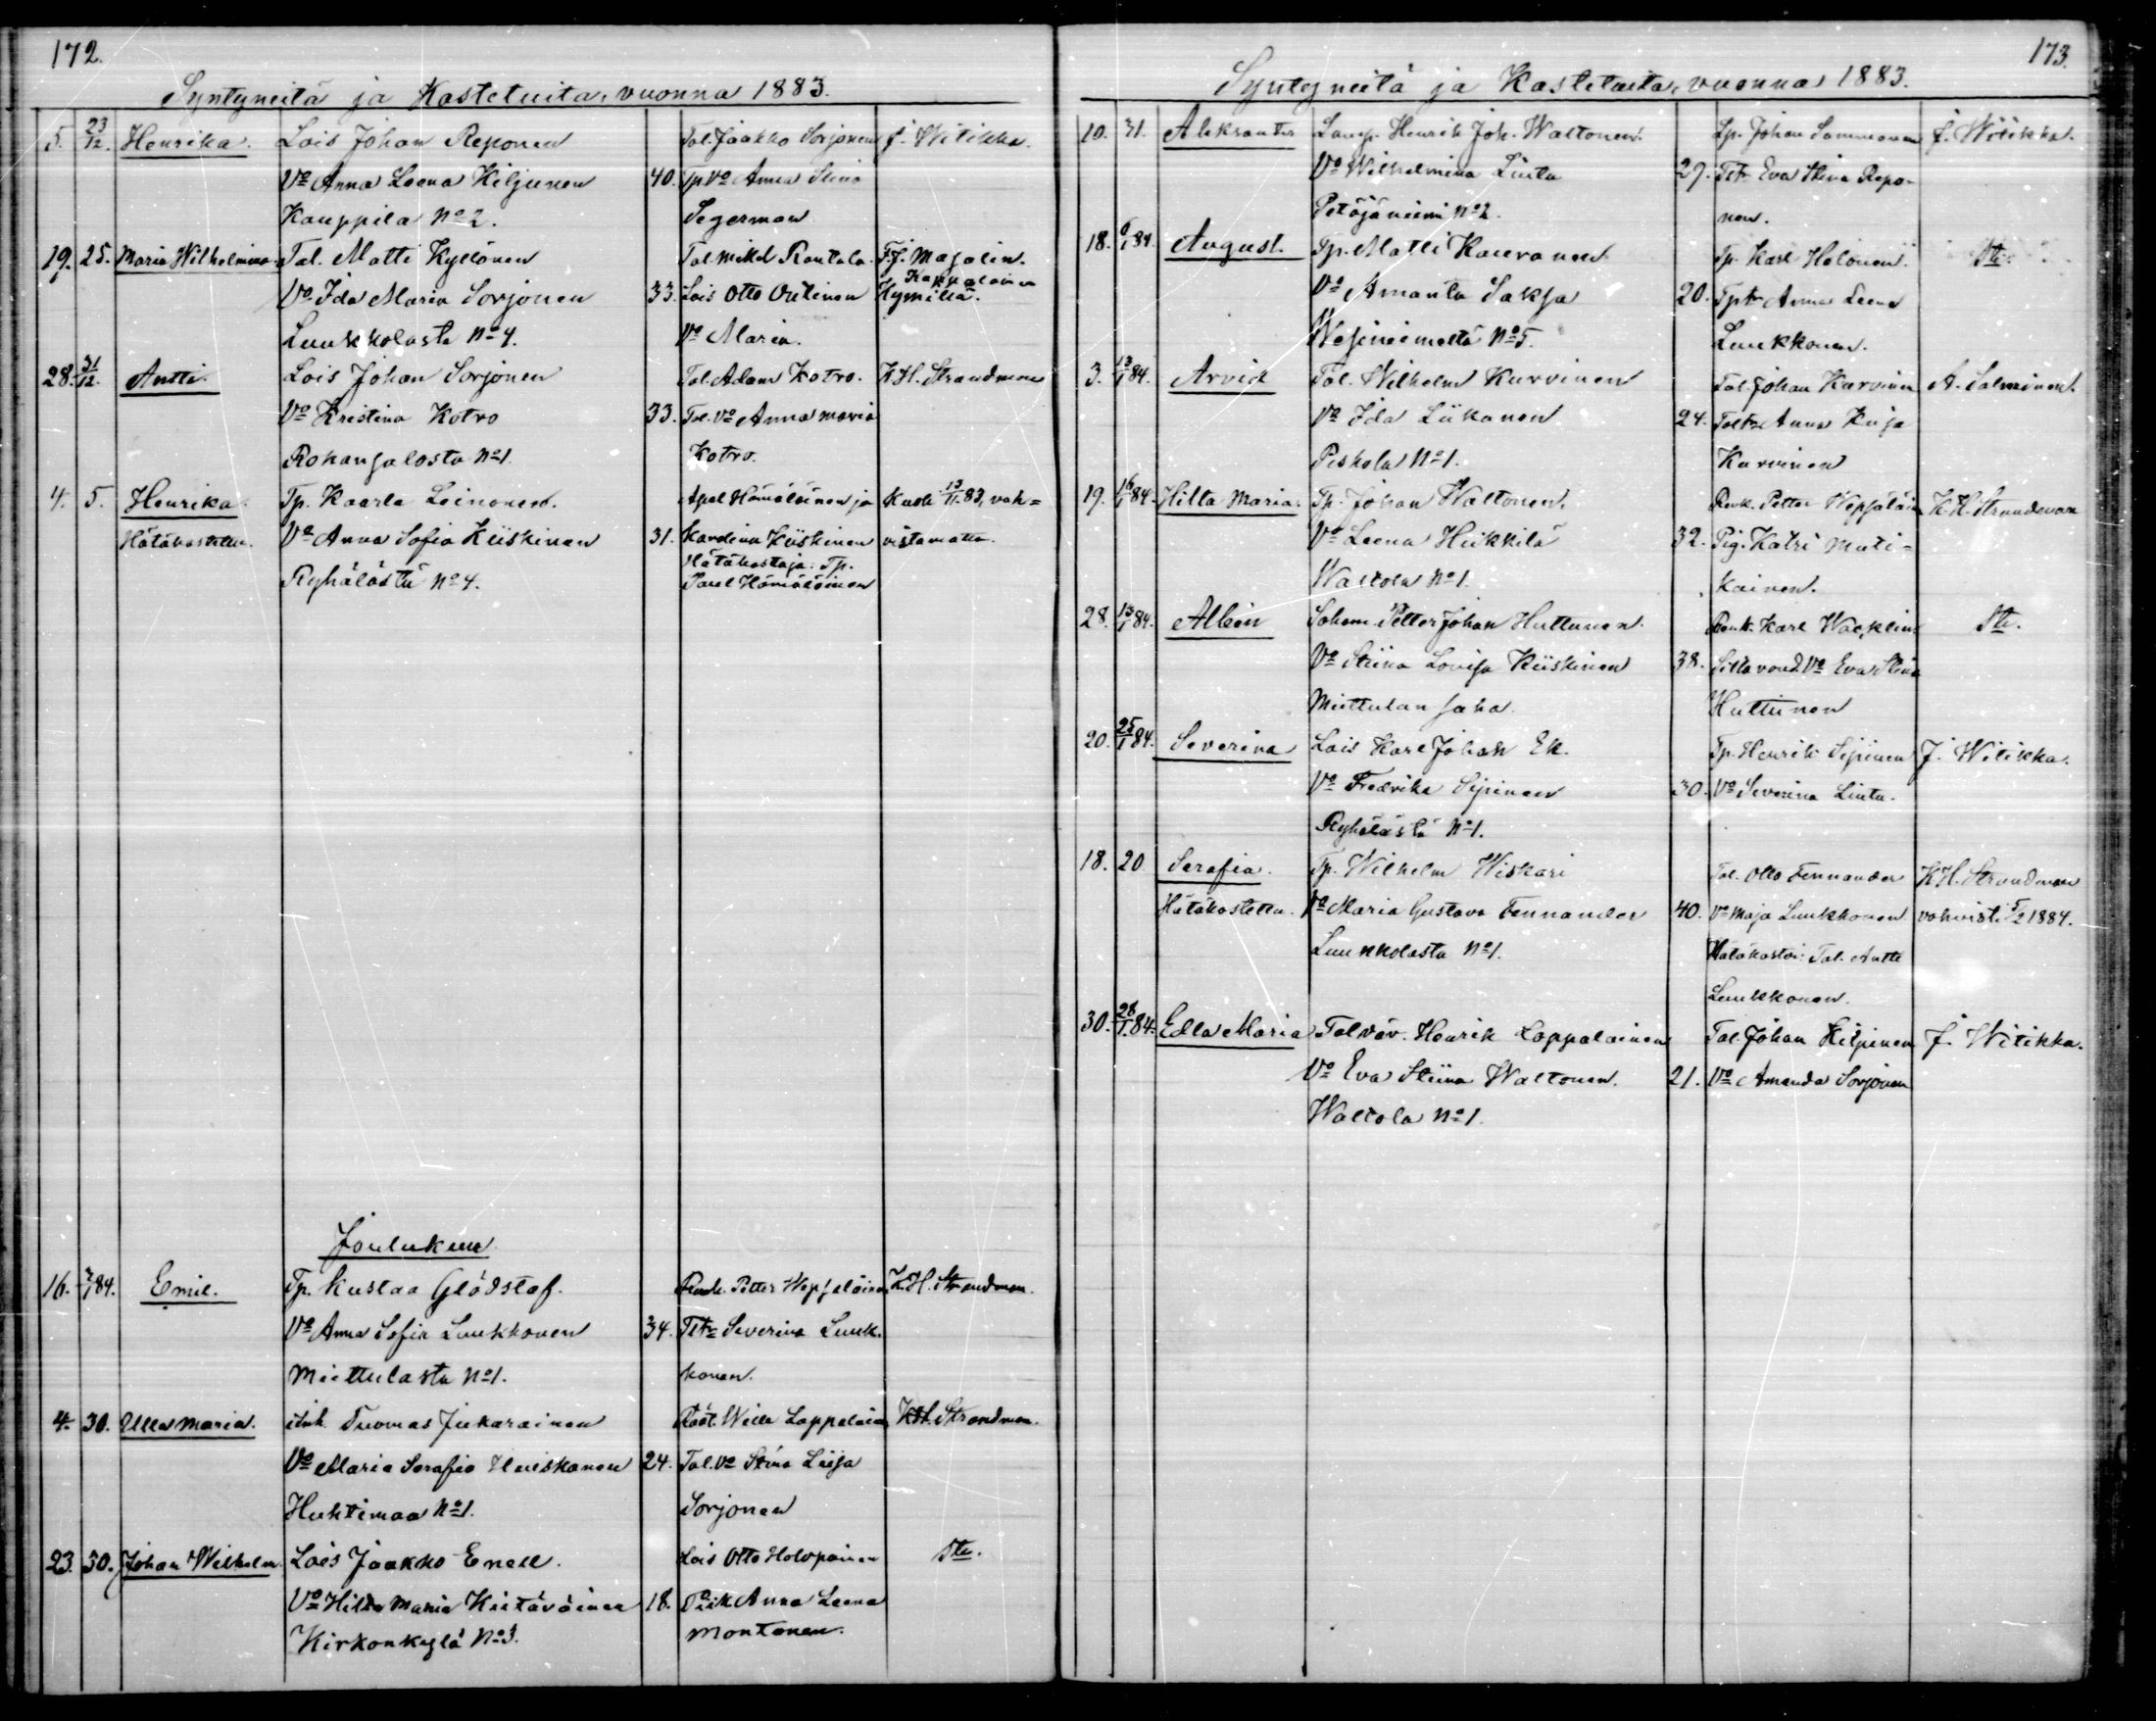 172.
Syntyneitä ja Kastetuita vuonna 1883.
5. 23/12. Henrika. Lois Johan Reponen Tal. Jaakko Sorjonen J. Witikka.
Vo Anna Leena Kiljunen 40. Tp. Vo Anna Stina
Kauppila No 2. Segerman
19. 25. Maria Wilhelmina. Tal. Matti Kyllönen Tal. Mikl Rantala. F.J. Majalin.
Vo Ida Maria Sorjonen 33. Lois Otto Outinen Kappalainen Kymiltä.
Luukkolasta No 4. Vo Maria.
28. 31/12. Antti. Lois Johan Sorjonen Tal. Adam Kotro. K.H. Strandman
Vo Kristina Kotro 33. Tal. Vo Anna Maria
Rohanjalosta No 1. Kotro.
4. 5. Henrika. Tp. Kaarle Leinonen. Apel Hämäläinen ja Kuoli 13/11.83, vah=
Hätäkastettu. Vo Anna Sofia Kiiskinen 31. Karolina Kiiskinen vistamatta.
Ryhälästä No 4. Hätäkastaja: Tp.
Paul Hämäläinen
Joulukuu
16. 3/1 84. Emil. Tp. Kustaa Glödstaf. Renk. Petter Wepsäläinen K.H. Strandman.
Vo Anna Sofia Luukkonen 34. Ttr Severina Luuk-
Miettulasta No 1. konen.
4. 30. Ulla Maria. itsh. Tuomas Jukarainen Räät. Wille Lappalainen K.H. Strandman.
Vo Maria Serafia Huiskonen 24. Tal. Vo Stina Liisa
Huhtimaa No 1. Sorjonen
23. 30. Johan Wilhelm. Lois Jaakko Enell. Lois Otto Holopainen Ste.
Vo Hilda Maria Kiitäväinen 18. Piik Anna Leena
Kirkonkylä No 3. Montonen.
173.
Syntyneitä ja Kastetuita vuonna 1883.
10. 31. Aleksanter Lamp. Henrik Joh. Waltonen. Lp. Johan Sammonen J. Witikka.
Vo Wilhelmina Lintu 29. Ttr Eva Stina Repo-
Petäjäniemi No 2. nen.
18. 6/1 84. August. Tp. Matti Kauranen Tp. Karl Holonen. Ste.
Vo Amanta Saksa 20. Tptr Anna Leena
Wesiniemeltä No 5. Luukkonen.
3. 13/1 84. Arvid Tal. Wilhelm Kurvinen Tal. Johan Kurvinen A. Salminen.
Vo Ida Liikanen 24. Taltr Anna Kaisa
Peskola No 1. Kurvinen
19. 16/1 84. Hilta Maria. Tp. Johan Waltonen. Renk. Petter Wepsäläin K.H. Strandman
Vo Leena Heikkilä 32. Pig. Katri Muti-
Waltola No 1. kainen.
28. 13/1 84. Albin Saham. Petter Johan Huttunen. Renk. Karl Wacklin Ste.
Vo Stiina Lovisa Kiiskinen 38. Siltavoud. Vo Eva Stina
Miettulan saha. Huttunen
20. 25/1 84. Severina Lois Karl Johan Ek. Tp. Henrik Sipinen J. Witikka.
Vo Fredrika Sipinen 30. Vo Severina Lintu.
Ryhälästä No 1.
18. 20 Serafia. Tp. Wilhelm Wiskari Tal. Otto Fennander K.H. Strandman
Hätäkastettu. Vo Maria Gustava Fennander 40. Vo Maja Luukkonen vahvisti 5/2 1884.
Luukkolasta No 1. Hätäkastoi: Tal. Antti
Luukkonen.
30. 28/1.84. Edla Maria Tal. väv. Henrik Lappalainen Tal. Johan Kilpinen J. Witikka.
Vo Eva Stiina Waltonen. 21. Vo Amanda Sorjonen
Waltola No 1.